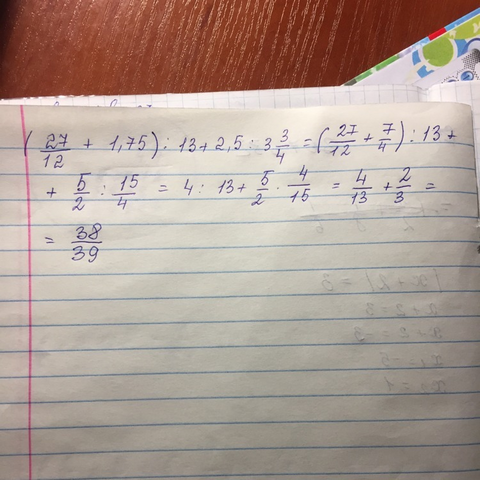 (27/12 + 1,75) : 13 + 2,5 : 3 3/4 = (27/12 + 7/4) : 13 +
+ 5/2 : 15/4 = 4 : 13 + 5/2 · 4/15 = 4/13 + 2/3 =
= 38/39